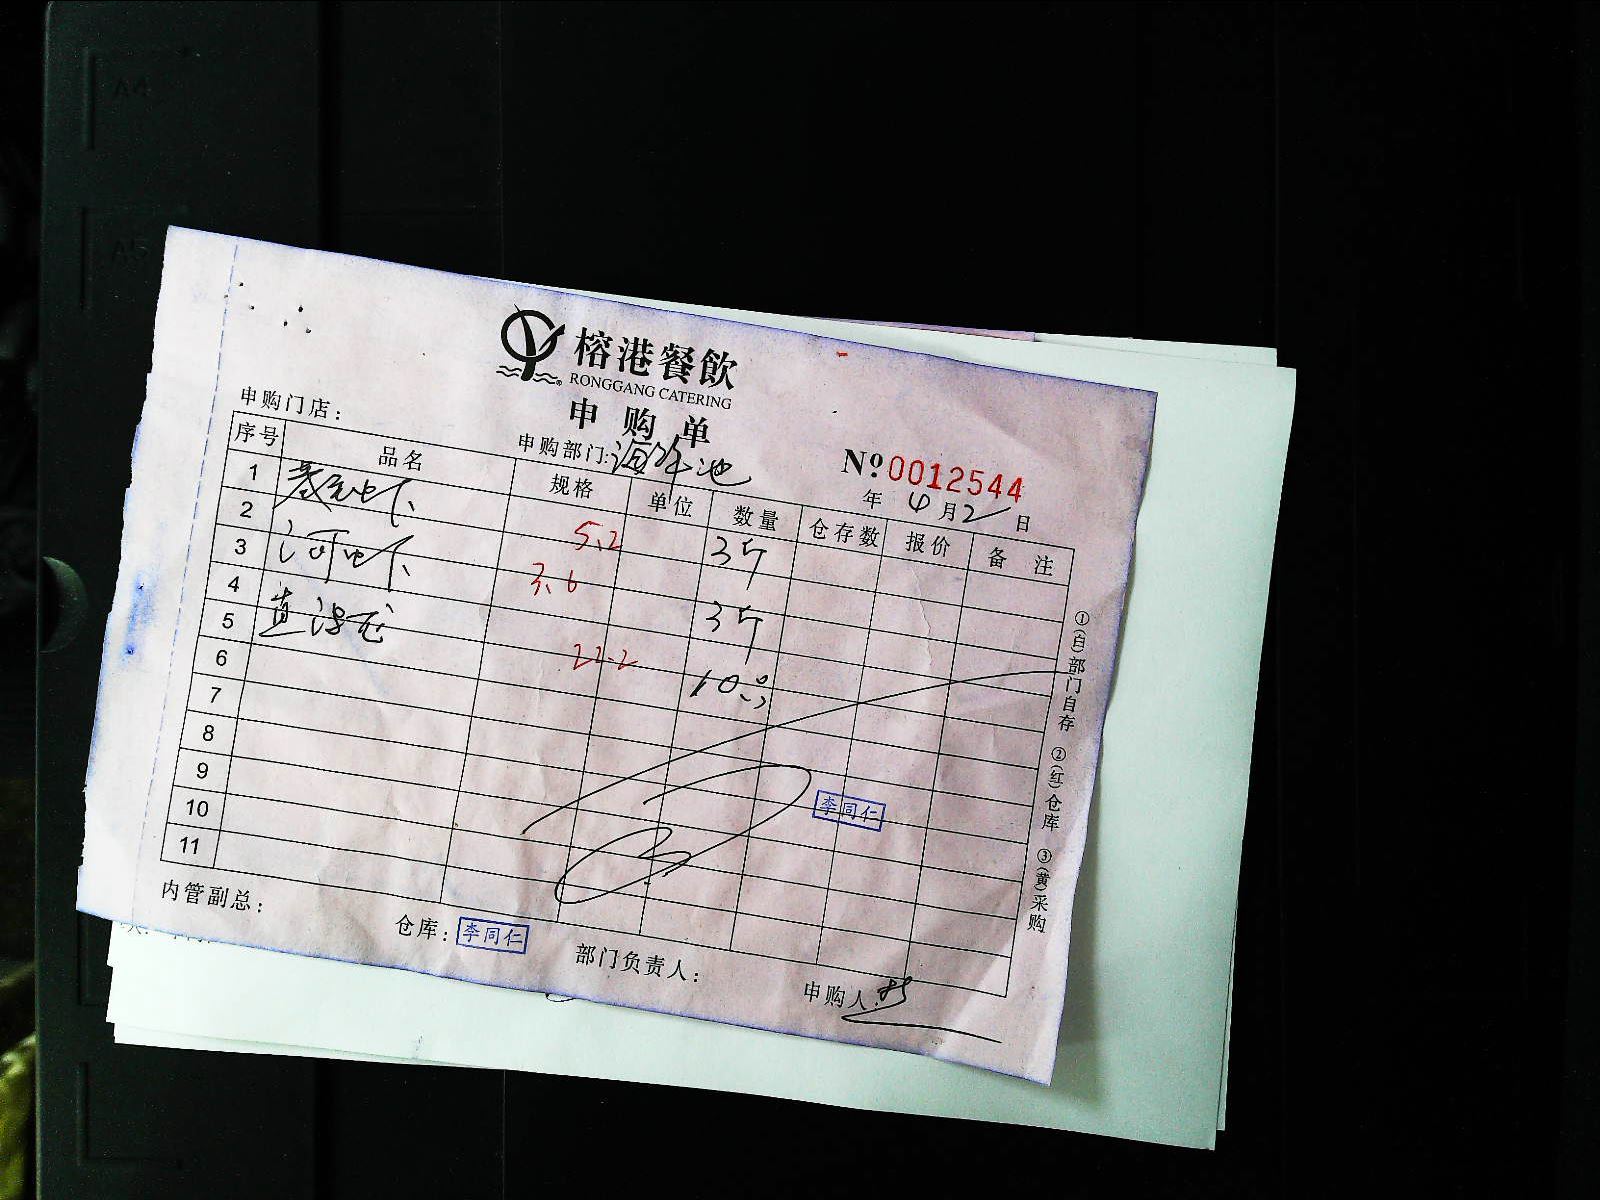 A4
A5
榕港餐飲
RONGGANG CATERING
申购单
申购门店：
申购部门：海鲜池
№ 0012544
年 4月2日
序号 品名 规格 单位 数量 仓存数 报价 备注
1 基围虾 5.2 3斤
2
3 河虾 3.6 3斤
4
5 22.2 10
6
7
8
9
10
11
李同仁
①(白)部门自存 ②(红)仓库 ③(黄)采购
内管副总：
仓库：李同仁
部门负责人：
申购人：